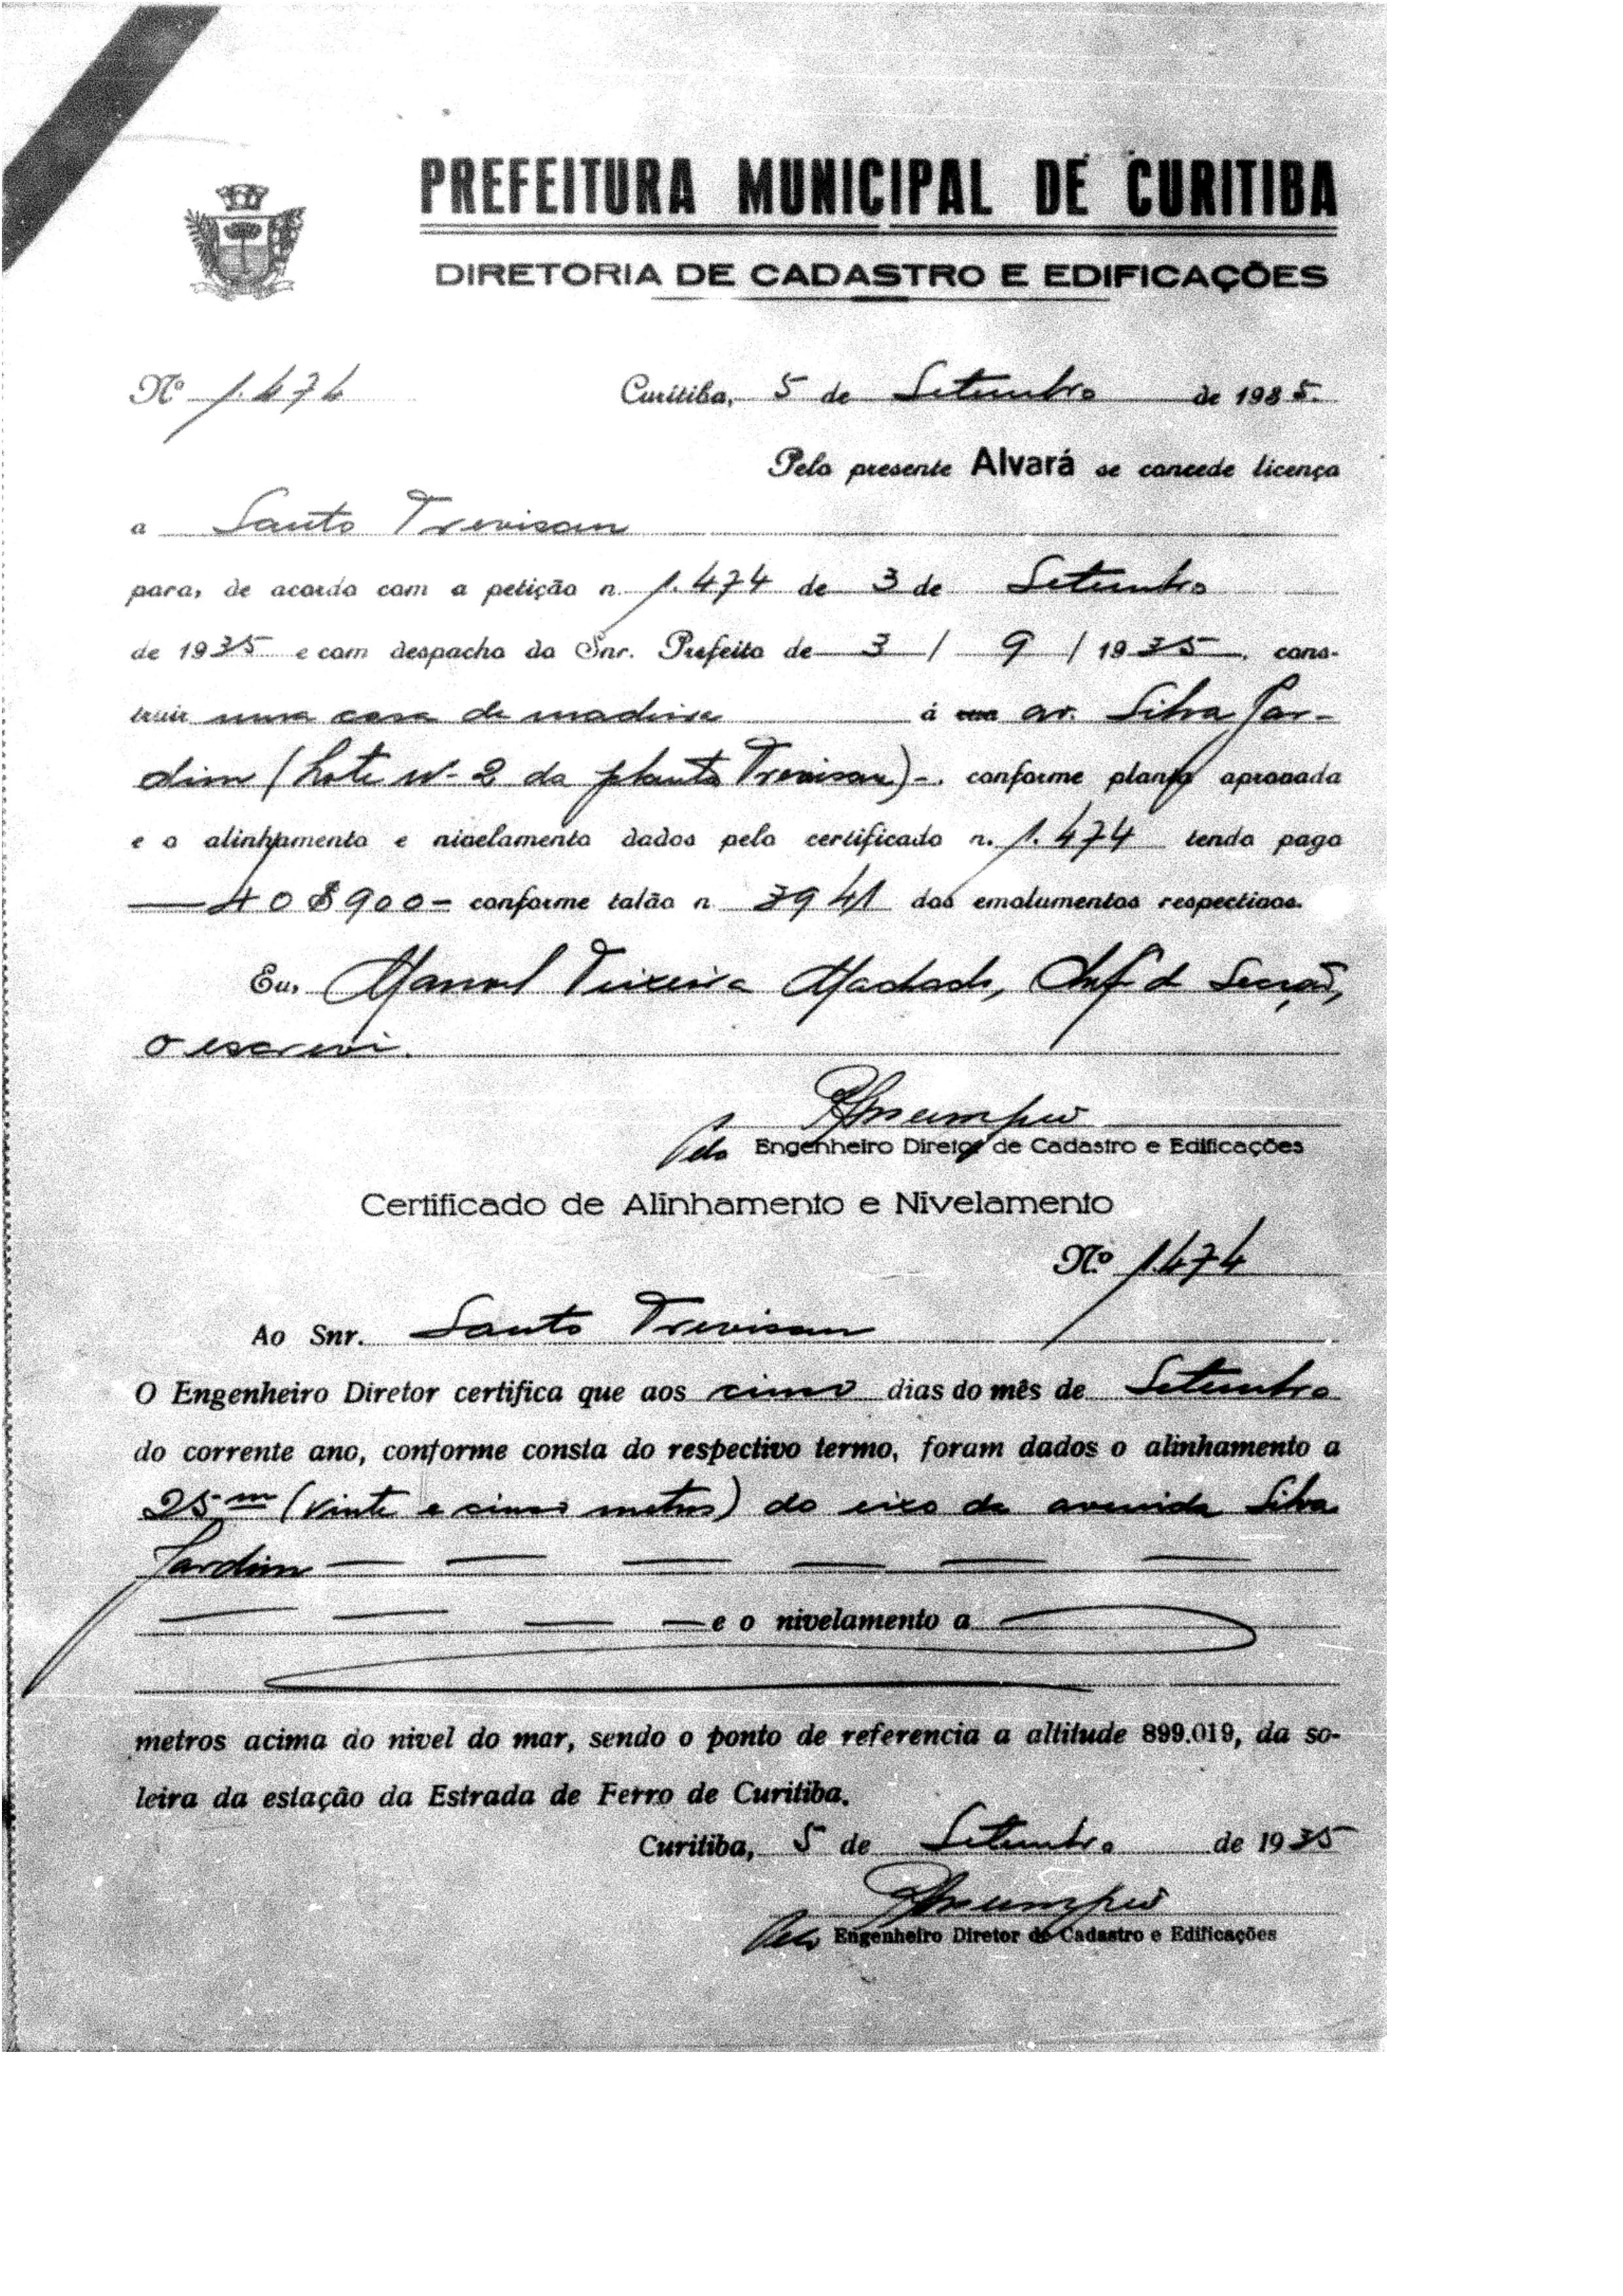 PREFEITURA MUNICIPAL DE CURITIBA
DIRETORIA DE CADASTRO E EDIFICAÇÕES
Nº 1.474 Curitiba, 5 de Setembro de 1935.
Pelo presente Alvará se concede licença
a Santo Trevisan
para, de acordo com a petição n. 1.474 de 3 de Setembro
de 1935 e com despacho do Snr. Prefeito de 3 / 9 / 1935, cons-
truir uma casa de madeira á rua av. Silva Jar-
dim (Lote Nº 2 da planta Trevisan) -. conforme planta aprovada
e o alinhamento e nivelamento dados pelo certificado n. 1.474 tendo pago
— 40$900 - conforme talão n 3941 dos emolumentos respectivos.
Eu, Manoel Teixeira Machado, Chefe de Secção,
o escrevi.
Pelo Engenheiro Diretor de Cadastro e Edificações
Certificado de Alinhamento e Nivelamento
Nº 1.474
Ao Snr. Santo Trevisan
O Engenheiro Diretor certifica que aos cinco dias do mês de Setembro
do corrente ano, conforme consta do respectivo termo, foram dados o alinhamento a
25 m (vinte e cinco metros) do eixo da avenida Silva
Jardim — — — — — —
— — — — e o nivelamento a
metros acima do nivel do mar, sendo o ponto de referencia a altitude 899.019, da so-
leira da estação da Estrada de Ferro de Curitiba.
Curitiba, 5 de Setembro de 1935
Pelo Engenheiro Diretor de Cadastro e Edificações